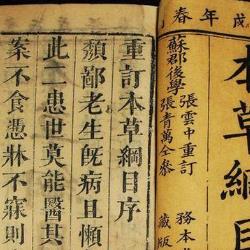 戌年春
本草綱目
務本
藏版
蘇郡後學
張雲中重訂
張青萬仝參
重訂本草綱目序
頹鄙老生既病且懶
此二患世莫能醫其
案不食憑牀不寐則